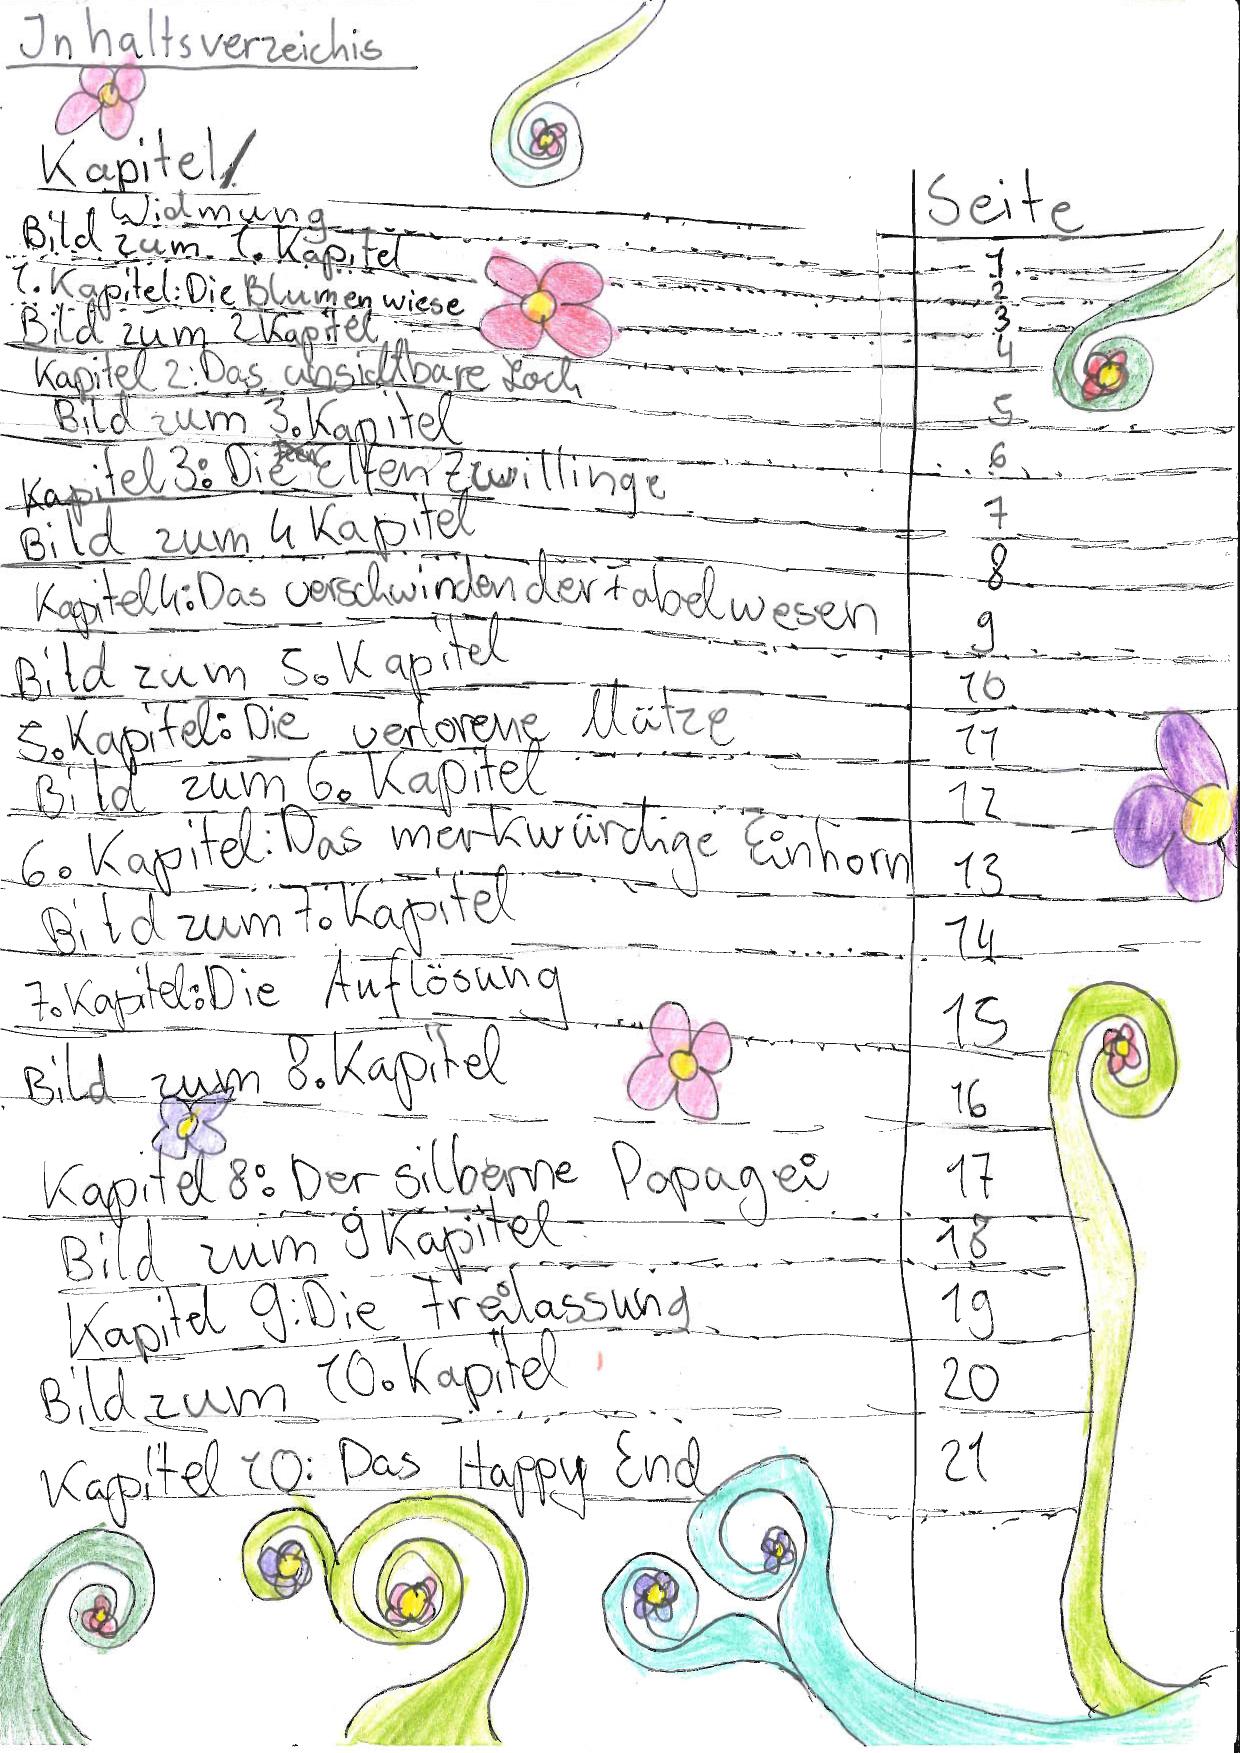 Inhaltsverzeichis
Kapitel/
Seite
Widmung 1
Bild zum 1. Kapitel 2
1. Kapitel: Die Blumenwiese 3
Bild zum 2 Kapitel 4
Kapitel 2: Das unsichtbare Loch 5
Bild zum 3. Kapitel 6
Kapitel 3: Die Elfen Zwillinge 7
Bild zum 4 Kapitel 8
Kapitel 4: Das verschwinden der Fabelwesen 9
Bild zum 5. Kapitel 10
5. Kapitel: Die verlorene Mütze 11
Bild zum 6. Kapitel 12
6. Kapitel: Das merkwürdige Einhorn 13
Bild zum 7. Kapitel 14
7. Kapitel: Die Auflösung 15
Bild zum 8. Kapitel 16
Kapitel 8: Der silberne Papagei 17
Bild zum 9 Kapitel 18
Kapitel 9: Die Freilassung 19
Bild zum 10. Kapitel 20
Kapitel 10: Das Happy End 21